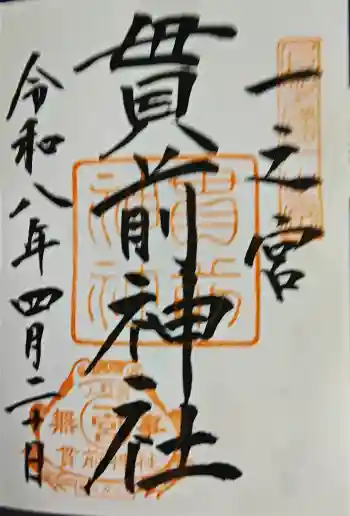 一之宮
貫前神社
令和八年四月二十日
貫前神社